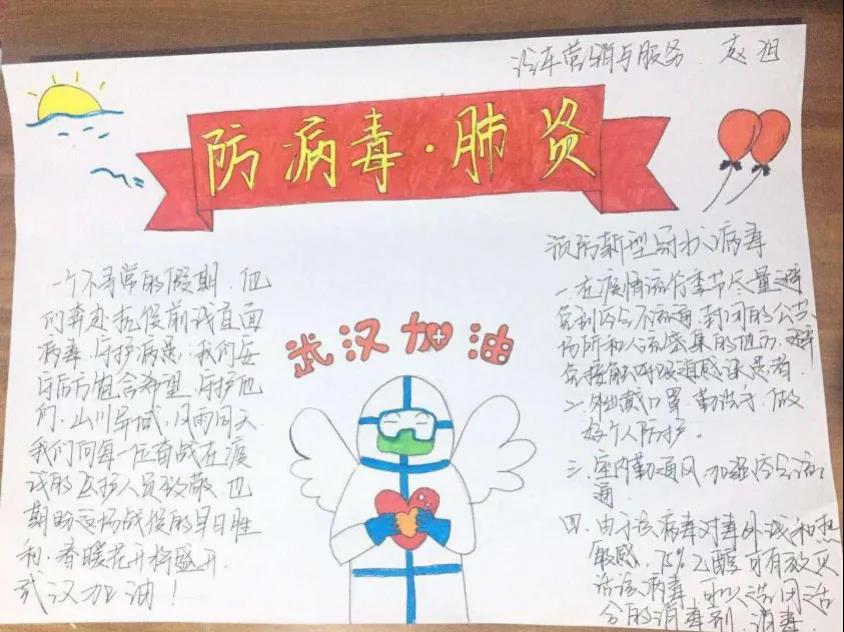 汽车营销与服务 赵祖
防病毒·肺炎
一个不寻常的假期,他
们奔赴抗役前线直面
病毒,守护病患,我们安
守后方饱含希望,守护他
们,山川异域,风雨同天,
我们向每一位奋战在疫
线的医护人员致敬,也
期盼这场战役的早日胜
利,春暖花开将盛开.
武汉加油!
武汉加油
预防新型冠状病毒
一.在疫情流行季节尽量避
免到空气不流通,封闭的公共
场所和人流密集的地方,避
免接触呼吸道感染患者.
二.外出戴口罩,勤洗手,做
好个人防护。
三.室内勤通风,加强空气流
通
四.由于该病毒对紫外线和热
敏感,75%乙醇可有效灭
活该病毒,可以选用适
合的消毒剂,消毒.